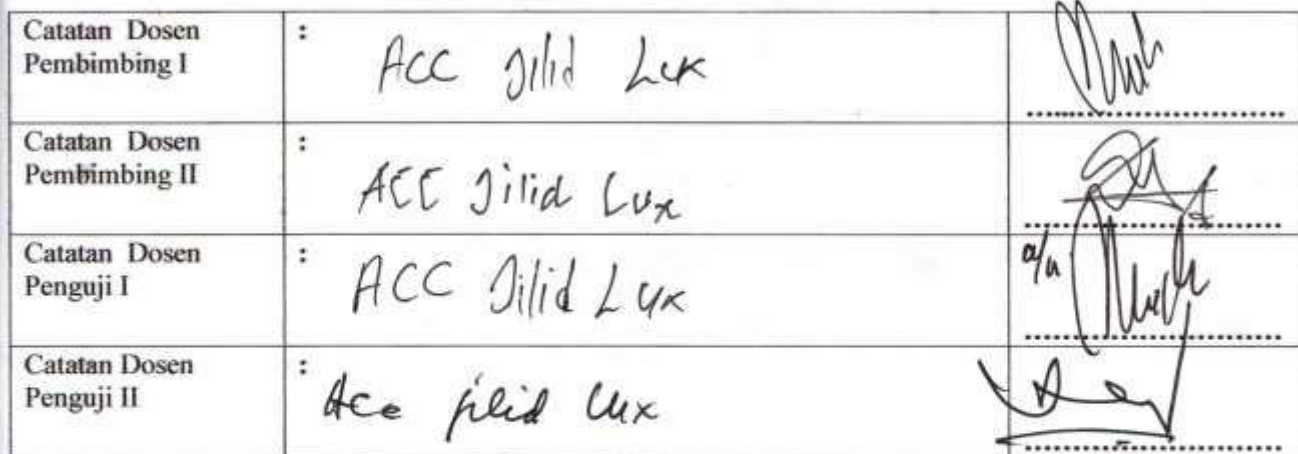 Catatan Dosen
Pembimbing I
:
ACC Jilid Lux
Catatan Dosen
Pembimbing II
:
ACC Jilid Lux
Catatan Dosen
Penguji I
:
ACC Jilid Lux
a/n
Catatan Dosen
Penguji II
:
Acc jilid lux